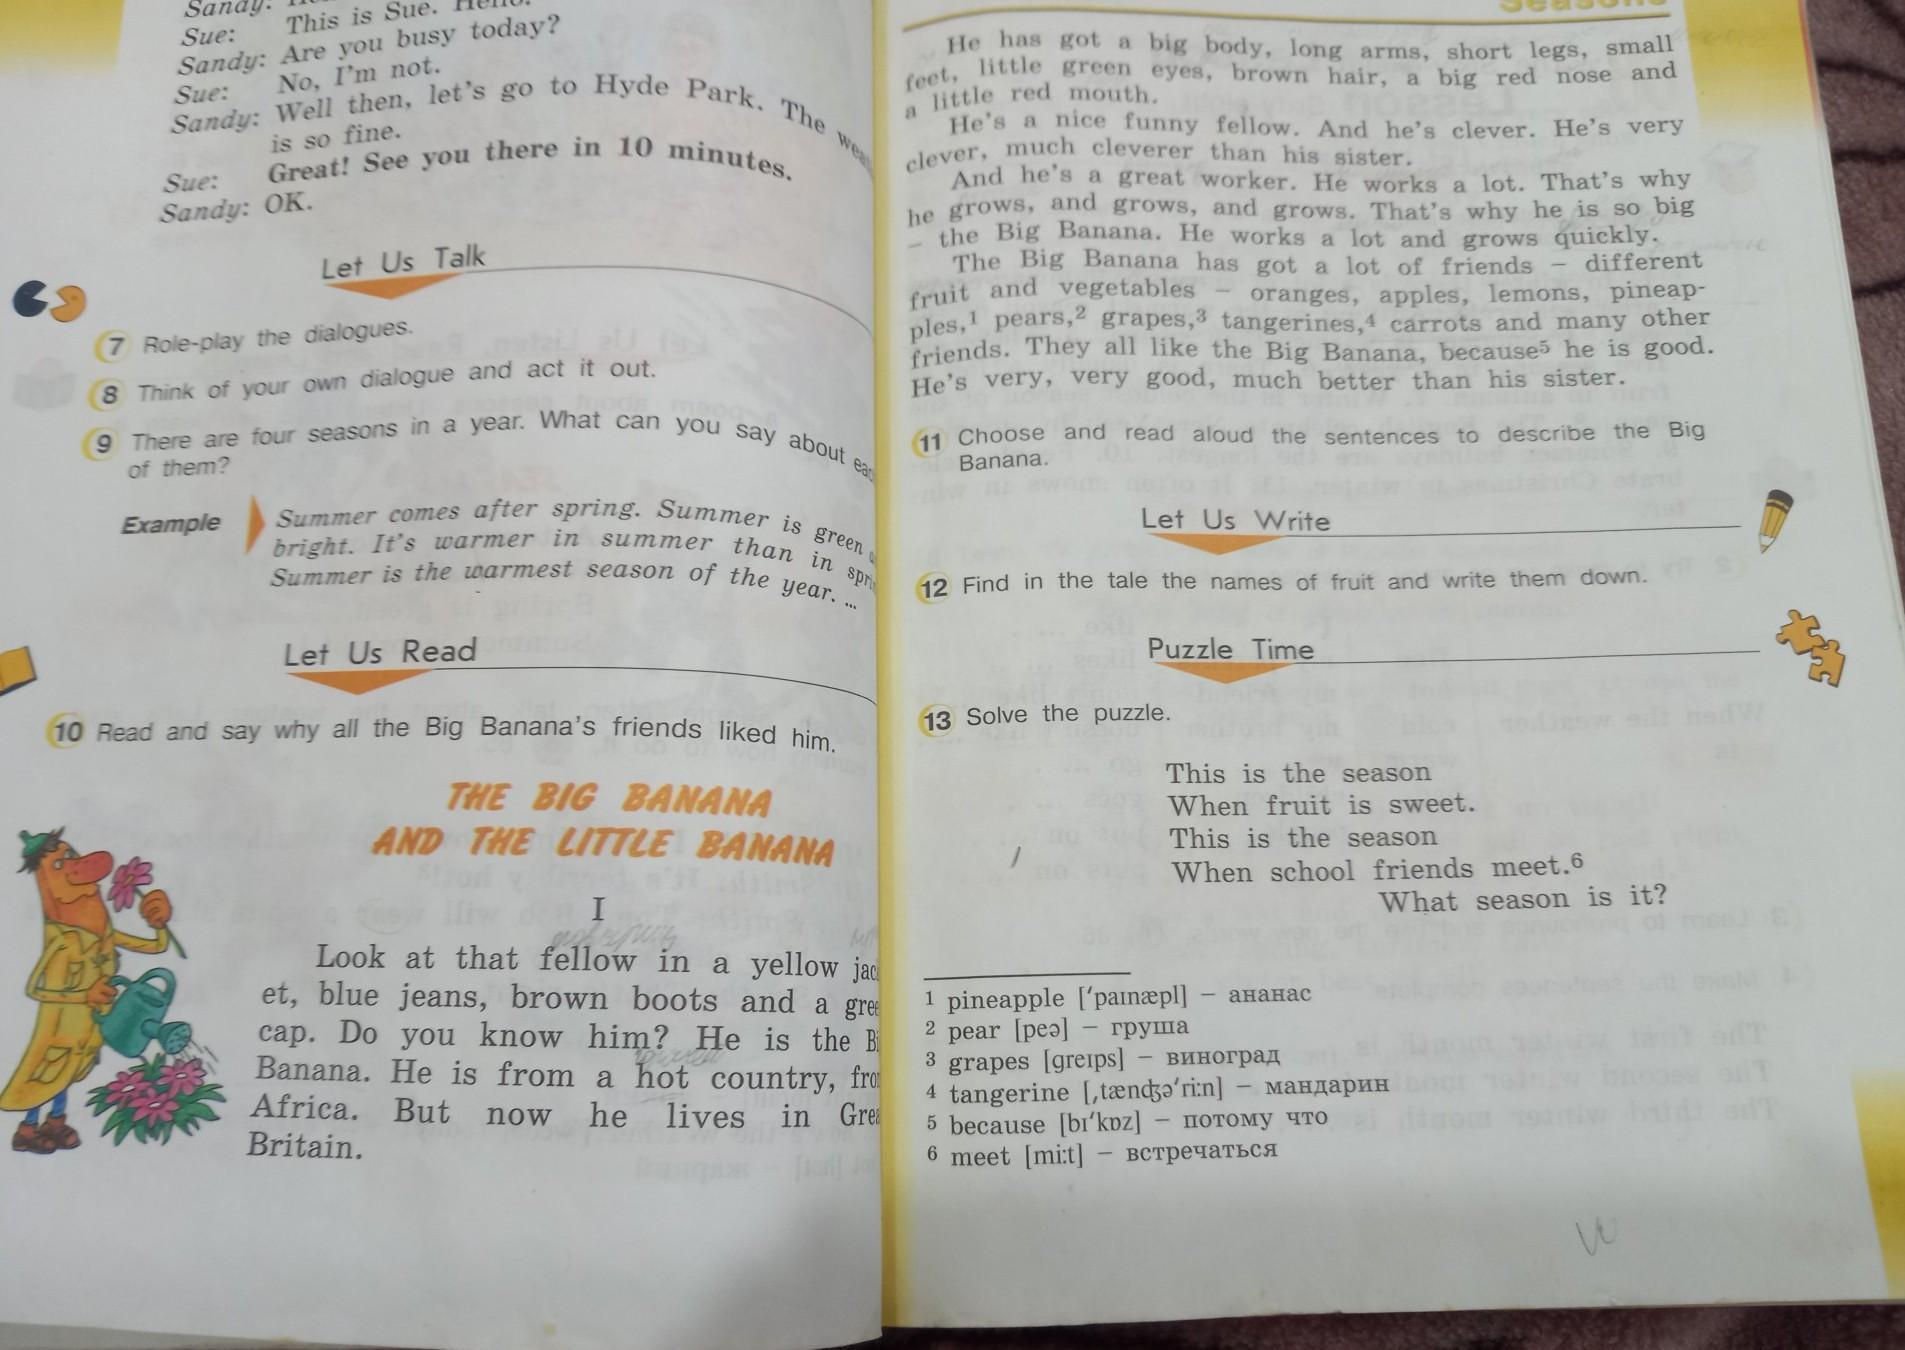 Sandy:
Sue: This is Sue. Hello.
Sandy: Are you busy today?
Sue: No, I'm not.
Sandy: Well then, let's go to Hyde Park. The
is so fine.
Sue: Great! See you there in 10 minutes.
Sandy: OK.
Let Us Talk
7 Role-play the dialogues.
8 Think of your own dialogue and act it out.
9 There are four seasons in a year. What can you say about
of them?
Example Summer comes after spring. Summer is green
bright. It's warmer in summer than in
Summer is the warmest season of the year. ...
Let Us Read
10 Read and say why all the Big Banana's friends liked him.
THE BIG BANANA
AND THE LITTLE BANANA
I
Look at that fellow in a yellow
et, blue jeans, brown boots and a
cap. Do you know him? He is the
Banana. He is from a hot country,
Africa. But now he lives in
Britain.
Seasons
He has got a big body, long arms, short legs, small
feet, little green eyes, brown hair, a big red nose and
a little red mouth.
He's a nice funny fellow. And he's clever. He's very
clever, much cleverer than his sister.
And he's a great worker. He works a lot. That's why
he grows, and grows, and grows. That's why he is so big
– the Big Banana. He works a lot and grows quickly.
The Big Banana has got a lot of friends – different
fruit and vegetables – oranges, apples, lemons, pineap-
ples,1 pears,2 grapes,3 tangerines,4 carrots and many other
friends. They all like the Big Banana, because5 he is good.
He's very, very good, much better than his sister.
11 Choose and read aloud the sentences to describe the Big
Banana.
Let Us Write
12 Find in the tale the names of fruit and write them down.
Puzzle Time
13 Solve the puzzle.
This is the season
When fruit is sweet.
This is the season
When school friends meet.6
What season is it?
1 pineapple ['paɪnæpl] – ананас
2 pear [peə] – груша
3 grapes [greɪps] – виноград
4 tangerine [,tænʤə'ri:n] – мандарин
5 because [bɪ'kɒz] – потому что
6 meet [mi:t] – встречаться